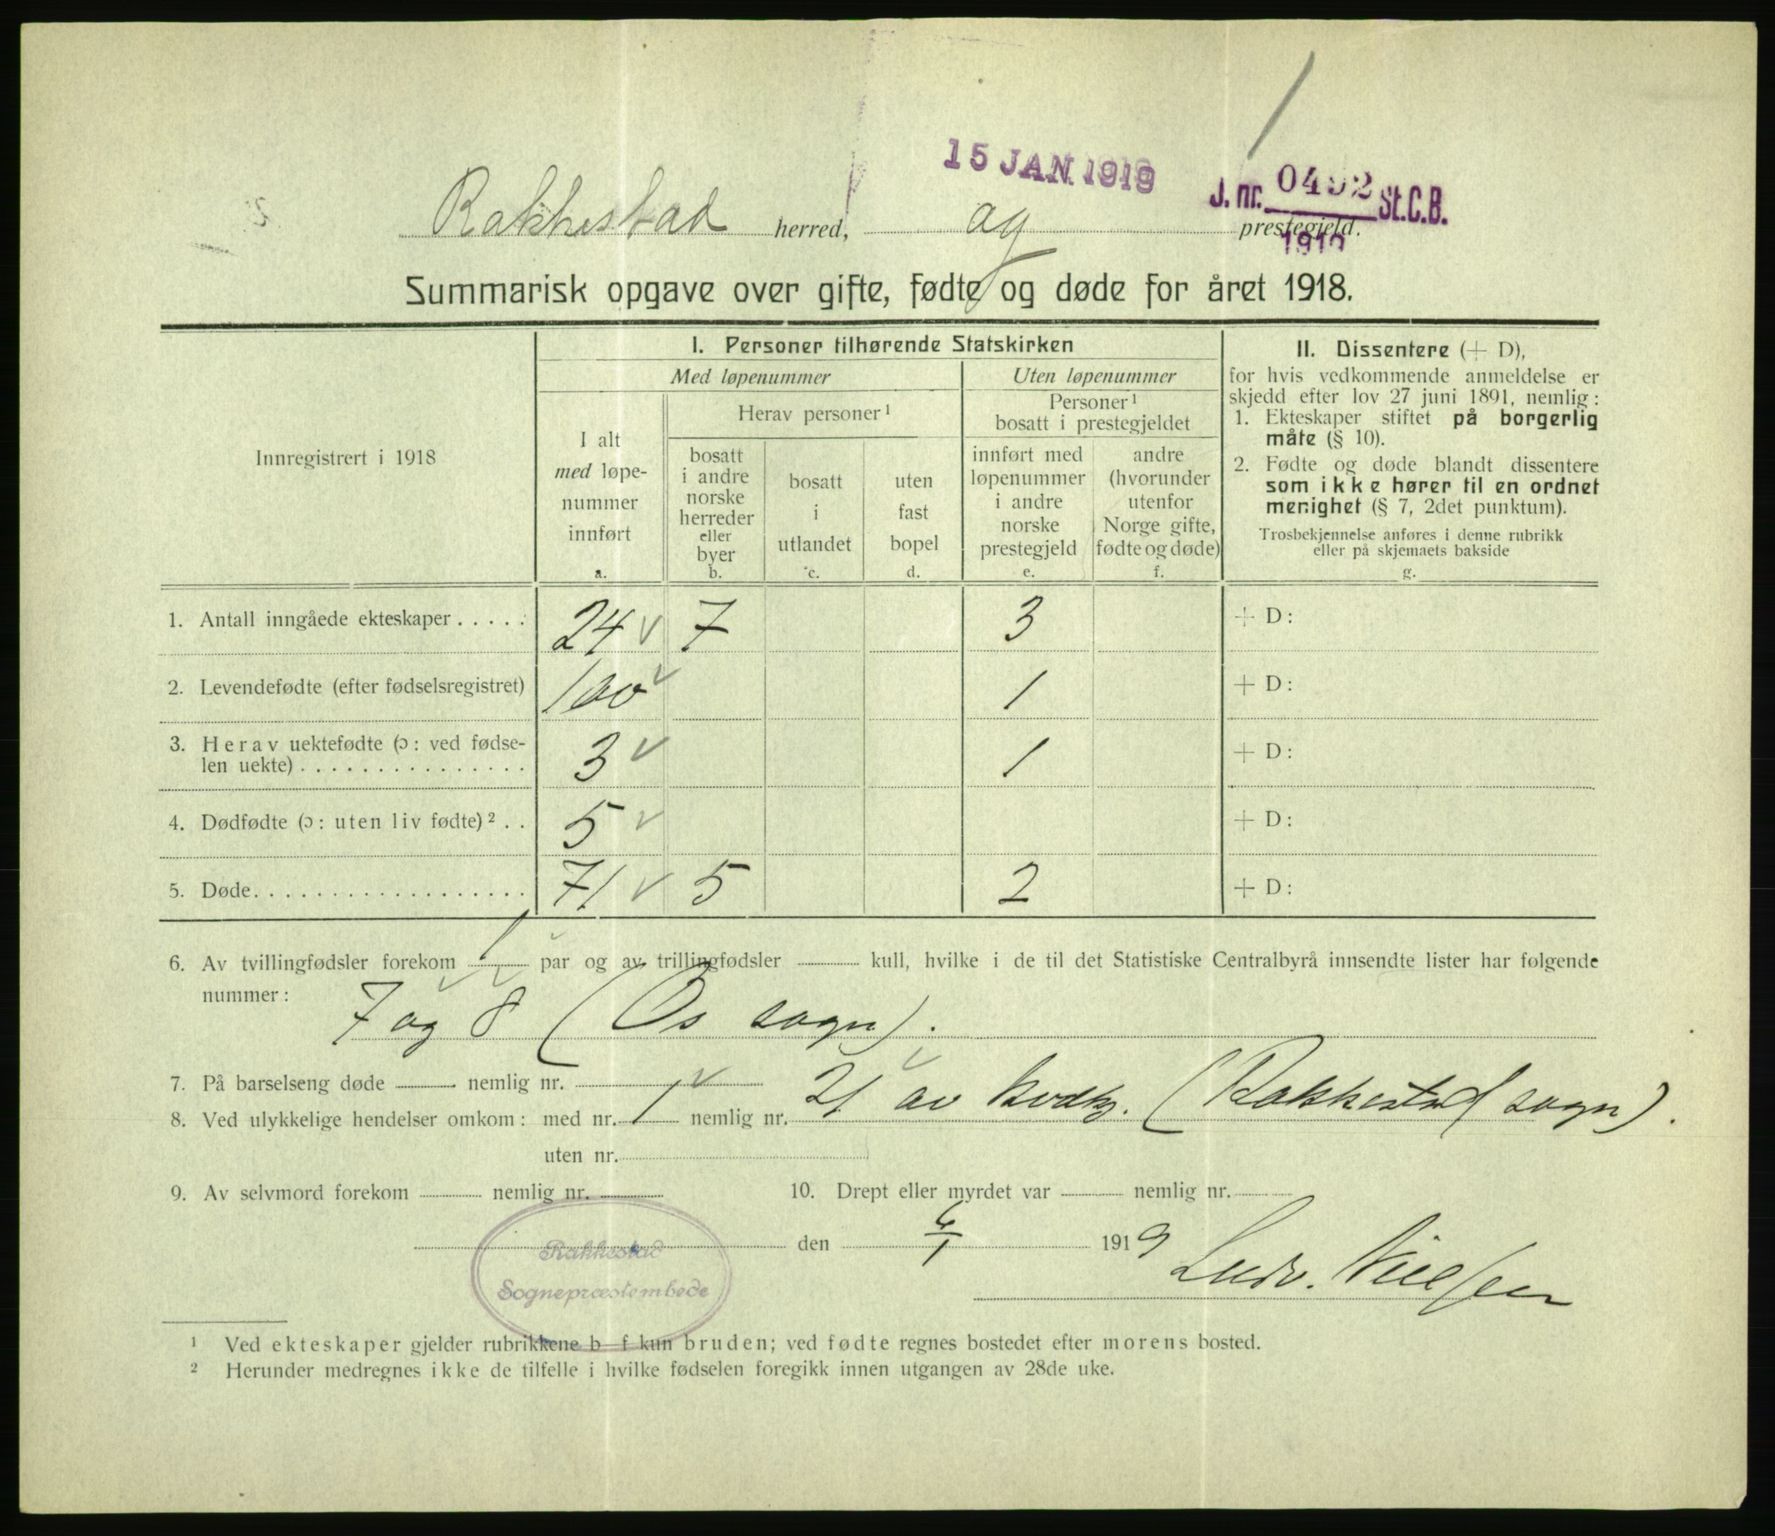 15 JAN. 1919
J. nr. 0492 St.C.B.
Rakkestad herred, og prestegjeld.
Summarisk opgave over gifte, fødte og døde for året 1918.
Innregistrert i 1918
I. Personer tilhørende Statskirken
Med løpenummer
Uten løpenummer
I alt
med løpe-
nummer
innført
a.
Herav personer¹
bosatt
i andre
norske
herreder
eller
byer
b.
bosatt
i
utlandet
c.
uten
fast
bopel
d.
Personer¹
bosatt i prestegjeldet
innført med
løpenummer
i andre
norske
prestegjeld
e.
andre
(hvorunder
utenfor
Norge gifte,
fødte og døde)
f.
II. Dissentere (+ D),
for hvis vedkommende anmeldelse er
skjedd efter lov 27 juni 1891, nemlig:
1. Ekteskaper stiftet på borgerlig
måte (§ 10).
2. Fødte og døde blandt dissentere
som ikke hører til en ordnet
menighet (§ 7, 2det punktum).
Trosbekjennelse anføres i denne rubrikk
eller på skjemaets bakside
g.
1. Antall inngåede ekteskaper . . . . . 24 ✓ 7 3 + D:
2. Levendefødte (efter fødselsregistret) 100 ✓ 1 + D:
3. Herav uektefødte (ɔ: ved fødse-
len uekte) . . . . . . . . . . . . . . . 3 ✓ 1 + D:
4. Dødfødte (ɔ: uten liv fødte)² . . 5 ✓ + D:
5. Døde. . . . . . . . . . . . . . . . . . 71 ✓ 5 2 + D:
6. Av tvillingfødsler forekom 1 par og av trillingfødsler kull, hvilke i de til det Statistiske Centralbyrå innsendte lister har følgende
nummer: 7 og 8 (Os sogn).
7. På barselseng døde nemlig nr.
8. Ved ulykkelige hendelser omkom: med nr. 1 nemlig nr. 21 av (Rakkestad sogn).
uten nr.
9. Av selvmord forekom nemlig nr. 10. Drept eller myrdet var nemlig nr.
den 6/1 1919
Rakkestad
Sognepræstembede
Ludv. Nielsen
¹ Ved ekteskaper gjelder rubrikkene b–f kun bruden; ved fødte regnes bostedet efter morens bosted.
² Herunder medregnes ikke de tilfelle i hvilke fødselen foregikk innen utgangen av 28de uke.